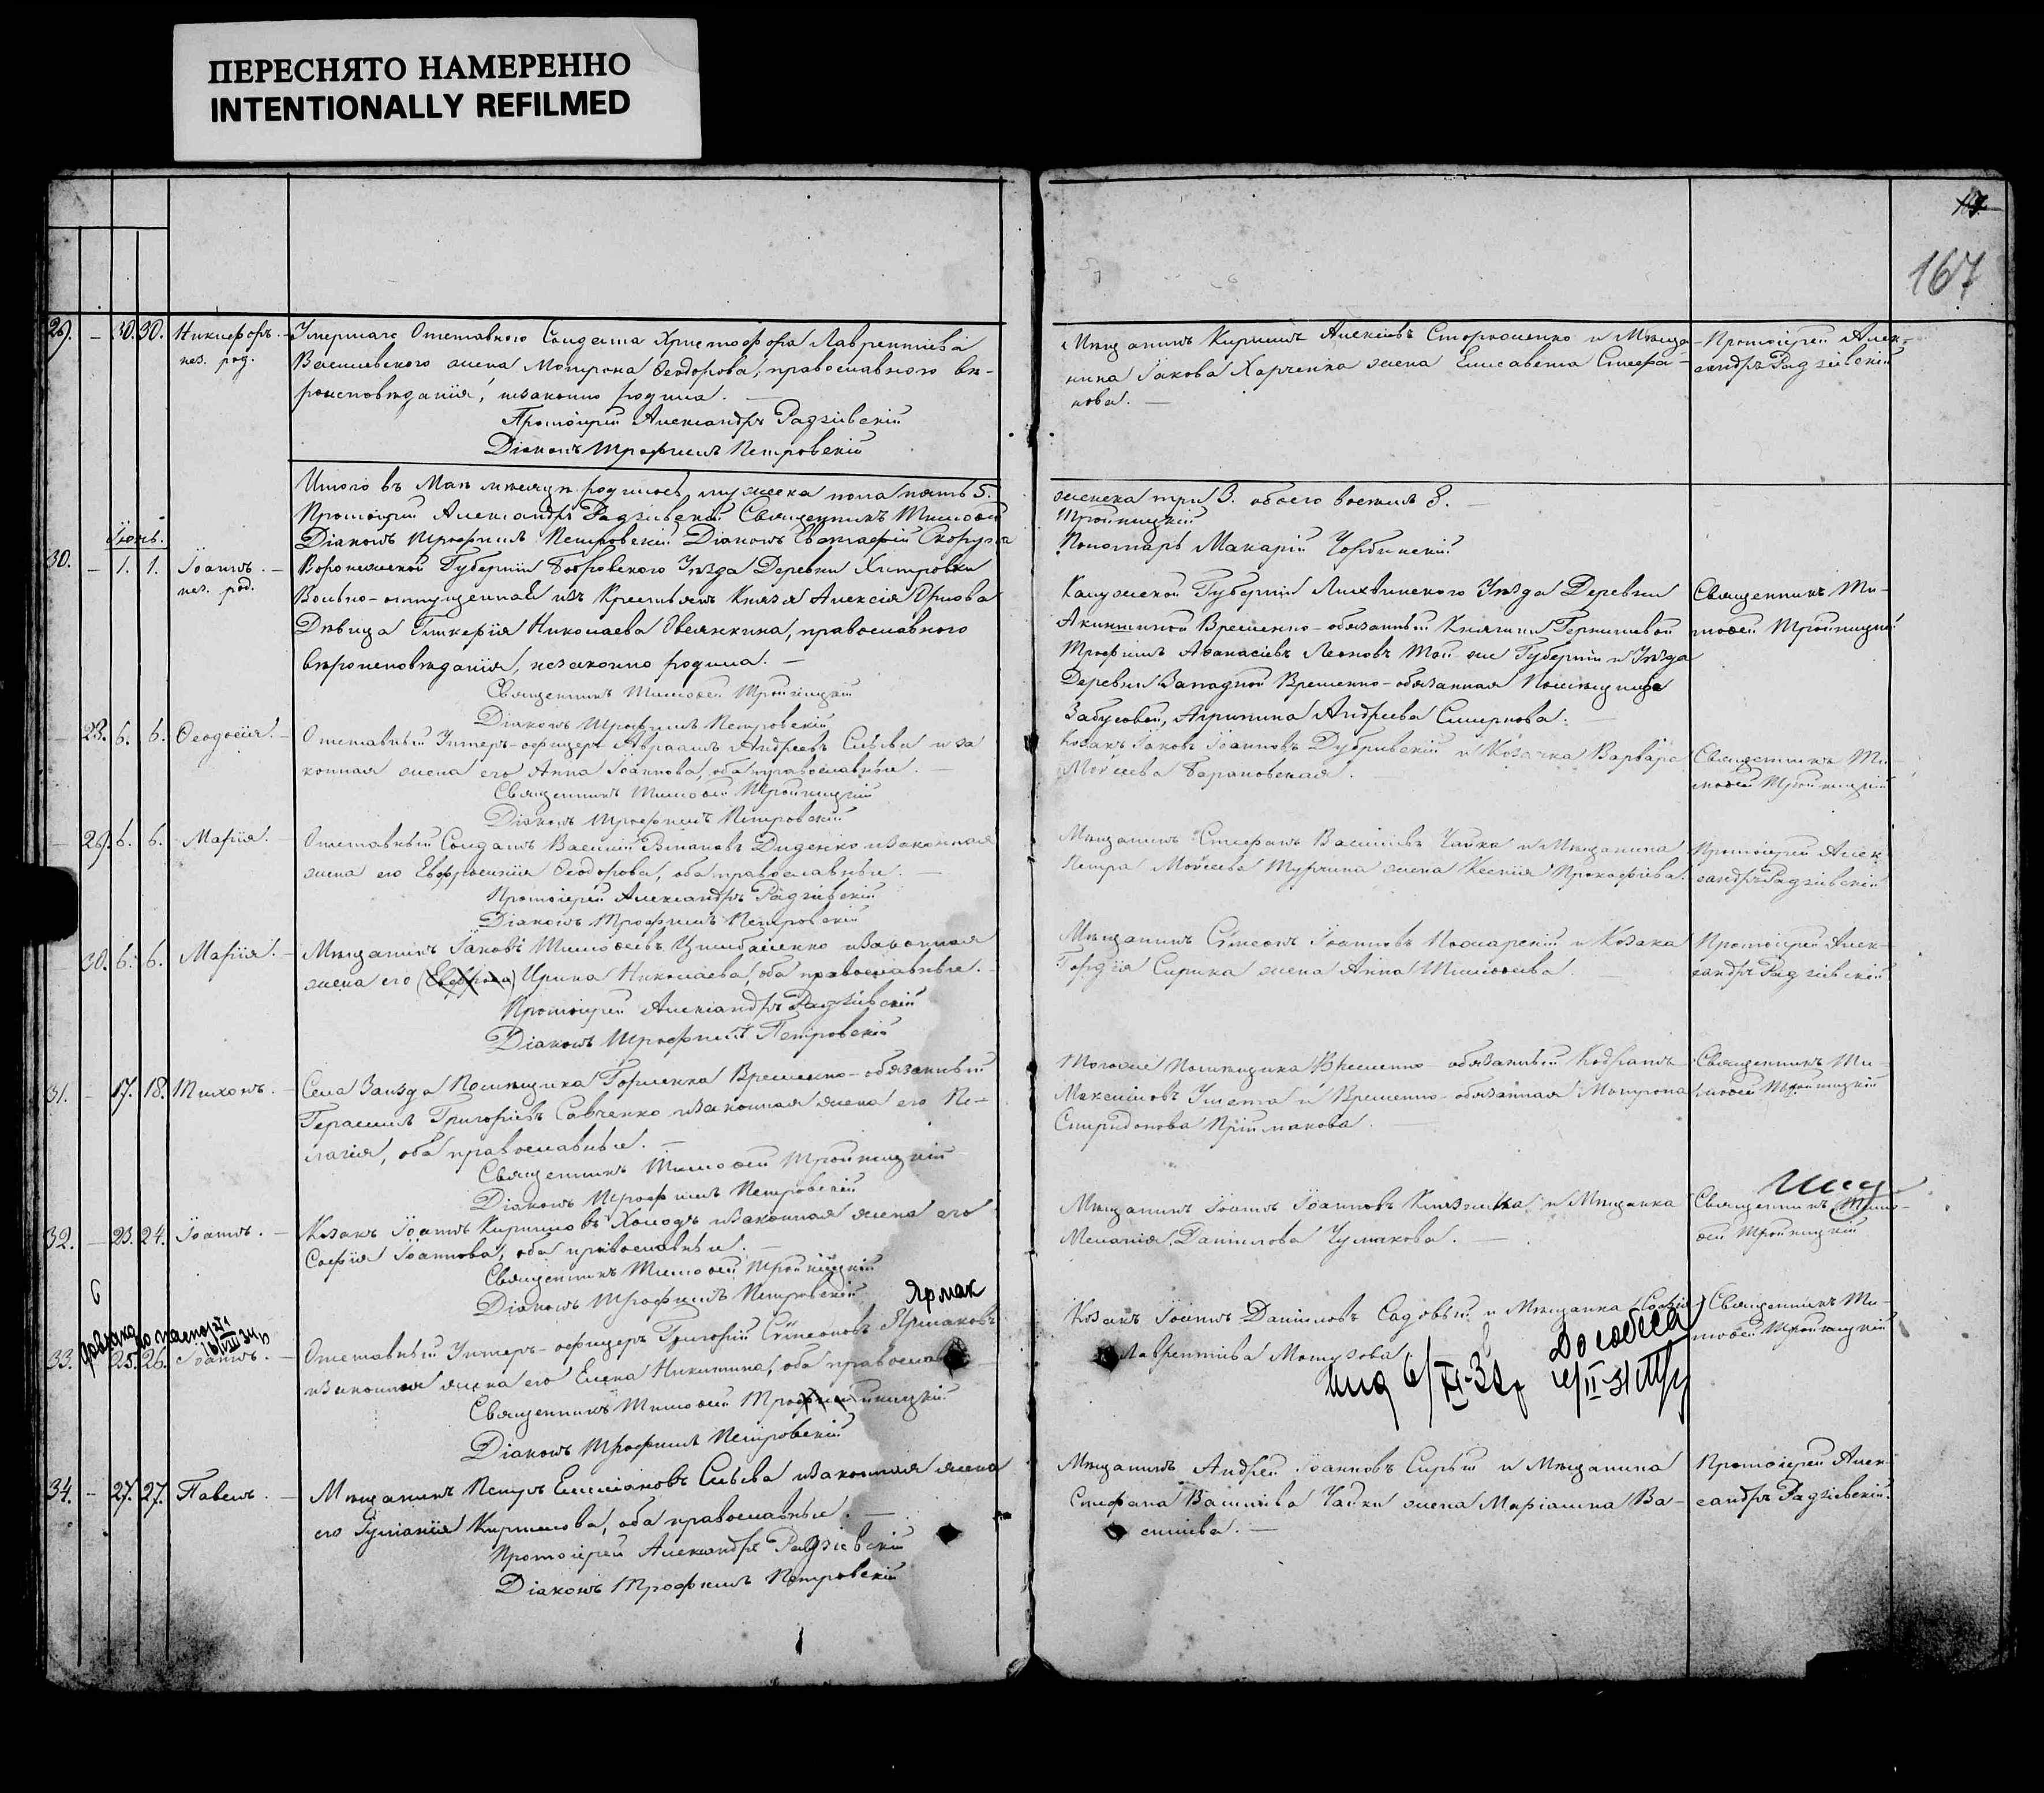 ПЕРЕСНЯТО НАМЕРЕННО
INTENTIONALLY REFILMED
167
29. – 30. 30. Никифоръ. нез. род.
Умершаго Отставного Солдата Христофора Лаврентіева
Василевского жена Мотрона Ѳеодорова, православного вѣ-
роисповѣданія, незаконно родила. —
Протоіерей Александръ Радзіевскій
Діаконъ Трофимъ Петровскій
Мѣщанинъ Кириллъ Алексіевъ Сторженко и Мѣща-
нина Іакова Харченка жена Елисавета Стефа-
нова. —
Протоіерей Алек-
сандръ Радзіевскій
Итого въ Маѣ мѣсяцѣ родилось, мужеска пола пять 5.
Протоіерей Александръ Радзіевскій Священникъ Тимоѳей
Діаконъ Трофимъ Петровскій Діаконъ Евстафій
женска три 3. обоего восемь 8. —
Тройницкій
Пономарь Макарій
Іюнь.
30. – 1. 1. Іоаннъ. нез. род.
Воронежской Губерніи Бобровского Уѣзда Деревни Хитровки
Вольно-отпущенная изъ Крестьянъ Князя Алексія Орлова
Дѣвица Гликерія Николаева Овсянкина, православного
вѣроисповѣданія, незаконно родила. —
Священникъ Тимоѳей Тройницкій
Діаконъ Трофимъ Петровскій
Калужской Губерніи Лихвинского Уѣзда Деревни
Временно-обязанный Княгини
Трофимъ Аѳанасіевъ Леоновъ Той же Губерніи и Уѣзда
Деревни Западной Временно-обязанная Помѣщицы
Забусовой, Агрипина Андреева Смирнова. —
Священникъ Ти-
моѳей Тройницкій
– 28. 6. 6. Ѳеодосія. –
Отставный Унтеръ-офицеръ Авраамъ Андреевъ и за
конная жена его Анна Іоаннова, оба православные. —
Священникъ Тимоѳей Тройницкій
Діаконъ Трофимъ Петровскій
Козакъ Іаковъ Іоанновъ и Козачка Варвара
Мойсеева Барановская.
Священникъ Ти-
моѳей Тройницкій
– 29. 6. 6. Марія. –
Отставный Солдатъ Василій Диденко и законная
жена его Евфросинія Ѳеодорова, оба православные. —
Протоіерей Александръ Радзіевскій
Діаконъ Трофимъ Петровскій
Мѣщанинъ Стефанъ Василіевъ Чайка и Мѣщанина
Петра Мойсеева Турчина жена Ксенія Прокофіева.
Протоіерей Алек-
сандръ Радзіевскій
– 30. 6. 6. Марія. –
Мѣщанинъ Іаковъ Тимоѳеевъ Цимбаленко и законная
жена его Ирина Николаева, оба православные. –
Протоіерей Александръ Радзіевскій
Діаконъ Трофимъ Петровскій
Мѣщанинъ Сѵмеонъ Іоанновъ Пожарскій и Козака
Гордія Сирика жена Анна Тимоѳеева. —
Протоіерей Алек-
сандръ Радзіевскій
31. – 17. 18. Тихонъ. –
Села Заѣзда Помѣщика Горленка Временно-обязанный
Герасимъ Григоріевъ Савченко и законная жена его Пе-
лагія, оба православные. —
Священникъ Тимоѳей Тройницкій
Діаконъ Трофимъ Петровскій
Тогоже Помѣщика Временно-обязанный Кодратъ
Максимовъ и Временно-обязанная Мотрона
Спиридонова Пріймакова. —
Священникъ Ти-
моѳей Тройницкій
32. – 23. 24. Іоаннъ. –
Козакъ Іоаннъ Кирилловъ Холодъ и законная жена его
Софія Іоаннова, оба православные. —
Священникъ Тимоѳей Тройницкій
Діаконъ Трофимъ Петровскій
Мѣщанинъ Іоаннъ Іоанновъ и Мѣщанка
Меланія Даніилова Чумакова. —
Священникъ Тимо-
ѳей Тройницкій
33. 25. 26. Іоаннъ. –
Ярмак
Отставный Унтеръ-офицеръ Григорій Сѵмеоновъ Ярмаковъ
и законная жена его Елена Никитина, оба православ
Священникъ Тимоѳей Тройницкій
Діаконъ Трофимъ Петровскій
Козакъ Іоаннъ Даніиловъ Садовый и Мѣщанка Софія
Лаврентіева Мотузова
Священникъ Ти-
моѳей Тройницкій
34. – 27. 27. Павелъ. –
Мѣщанинъ Петръ Емиліановъ и законная жена
его Іуліанія Кириллова, оба православные. —
Протоіерей Александръ Радзіевскій
Діаконъ Трофимъ Петровскій
Мѣщанинъ Андрей Іоанновъ Сирый и Мѣщанина
Стефана Василіева Чайки жена Маріамна Ва-
силіева. —
Протоіерей Алек-
сандръ Радзіевскій